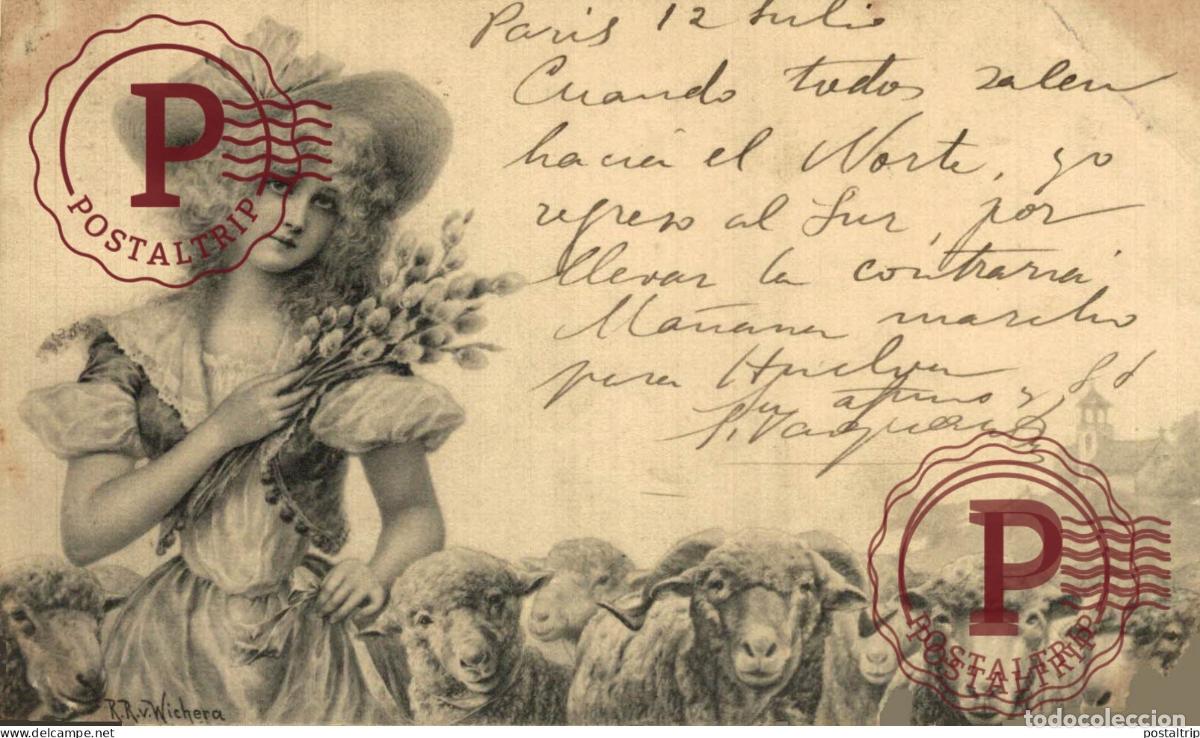 Paris 12 Julio
Cuando todos salen
hacia el Norte, yo
regreso al Sur, por
llevar la contraria
Mañana marcho
para Huelva
Su afmo y
P
POSTALTRIP
R.R.v.Wichera
P
POSTALTRIP
POSTALTRIP
todocoleccion
www.todocoleccion.net
postaltrip